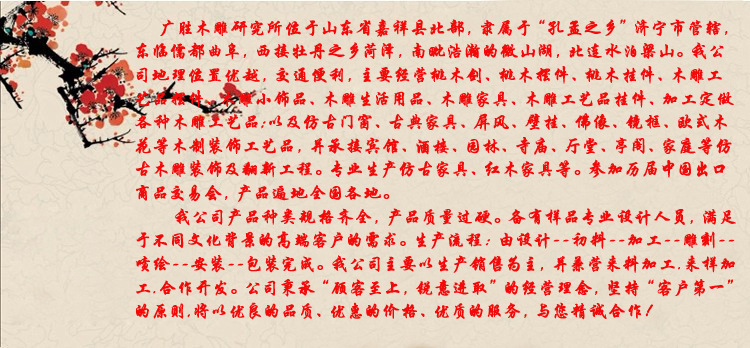 广胜木雕研究所位于山东省嘉祥县北部，隶属于“孔孟之乡”济宁市管辖，
东临儒都曲阜，西接牡丹之乡菏泽，南毗浩瀚的微山湖，北连水泊梁山。我公
司地理位置优越，交通便利，主要经营桃木剑、桃木摆件、桃木挂件、木雕工
艺品摆件、木雕小饰品、木雕生活用品、木雕家具、木雕工艺品挂件、加工定做
各种木雕工艺品;以及仿古门窗、古典家具、屏风、壁挂、佛像、镜框、欧式木
花等木制装饰工艺品，并承接宾馆、酒楼、园林、寺庙、厅堂、亭阁、家庭等仿
古木雕装饰及翻新工程。专业生产仿古家具、红木家具等。参加历届中国出口
商品交易会，产品遍地全国各地。
我公司产品种类规格齐全，产品质量过硬。各有样品专业设计人员，满足
于不同文化背景的高端客户的需求。生产流程：由设计--初料--加工--雕刻--
喷绘--安装--包装完成。我公司主要以生产销售为主，并兼营来料加工.来样加
工.合作开发。公司秉承“顾客至上，锐意进取”的经营理念，坚持“客户第一”
的原则,将以优良的品质、优惠的价格、优质的服务，与您精诚合作！